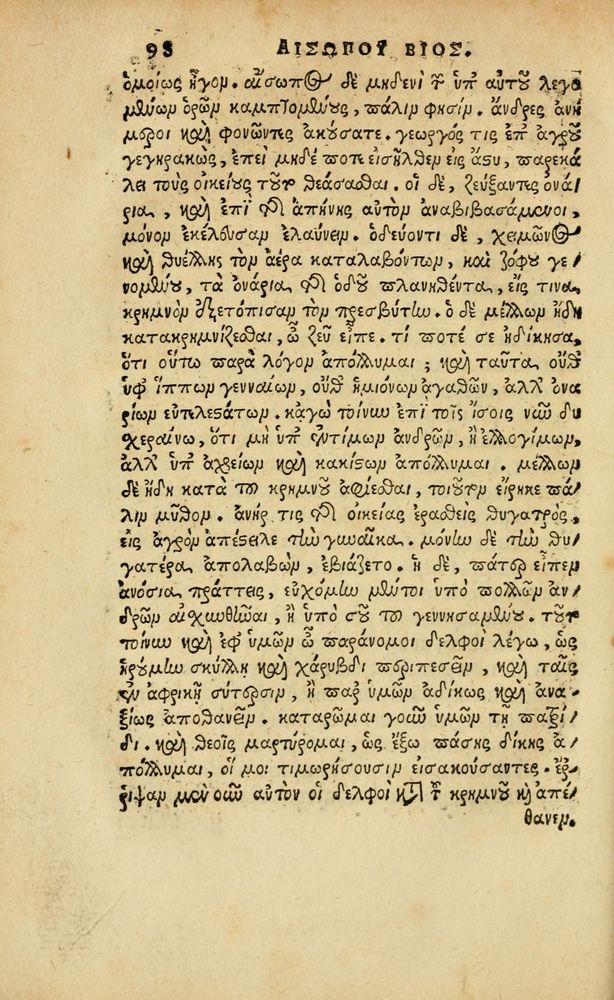 98 ΑΙΣΩΠΟΥ ΒΙΟΣ.
ὁμοίως ἦγον. αἴσωπος δὲ μηδενὶ τῶν ὑπ' αὐτοῦ λεγο
μένων ὁρῶν καμπτομένους, πάλιν φησίν. ἄνδρες ἀνή
μεροι καὶ φονῶντες ἀκούσατε. γεωργός τις ἐπ' ἀγροῦ
γεγηρακὼς, ἐπεὶ μηδέ ποτε εἰσῆλθεν εἰς ἄστυ, παρεκά
λει τοὺς οἰκείους τοῦτο θεάσασθαι. οἱ δὲ, ζεύξαντες ὀνά
ρια, καὶ ἐπὶ τῆς ἀπήνης αὐτὸν ἀναβιβασάμενοι,
μόνον ἐκέλευσαν ἐλαύνειν. ὁδεύοντι δὲ, χειμῶνος
καὶ θυέλλης τὸν ἀέρα καταλαβόντων, καὶ ζόφου γε
νομένου, τὰ ὀνάρια, τῆς ὁδοῦ πλανηθέντα, εἴς τινα
κρημνὸν ἐξετόπισαν τὸν πρεσβύτην. ὁ δὲ μέλλων ἤδη
κατακρημνίζεσθαι, ὦ ζεῦ εἶπε. τί ποτέ σε ἠδίκησα,
ὅτι οὕτω παρὰ λόγον ἀπόλλυμαι; καὶ ταῦτα, οὔθ'
ὑφ' ἵππων γενναίων, οὔθ' ἡμιόνων ἀγαθῶν, ἀλλ' ὀνα
ρίων εὐτελεστάτων. κἀγὼ τοίνυν ἐπὶ τοῖς ἴσοις νῦν δυ
χεραίνω, ὅτι μὴ ὑπ' ἐντίμων ἀνδρῶν, ἢ ἐλλογίμων,
ἀλλ' ὑπ' ἀχρείων καὶ κακίστων ἀπόλλυμαι. μέλλων
δὲ ἤδη κατὰ τοῦ κρημνοῦ ἀφίεσθαι, τοιοῦτον εἴρηκε πά
λιν μῦθον. ἀνήρ τις τῆς οἰκείας ἐρασθεὶς θυγατρὸς,
εἰς ἀγρὸν ἀπέστειλε τὴν γυναῖκα. μόνην δὲ τὴν θυ
γατέρα ἀπολαβὼν, ἐβιάζετο. ἡ δὲ, πάτερ εἶπεν
ἀνόσια πράττεις, εὐχόμην μέντοι ὑπὸ πολλῶν ἀν
δρῶν αἰσχυνθῆναι, ἢ ὑπὸ σοῦ τοῦ γεννησαμένου. τοῦτο
τοίνυν καὶ ἐφ' ὑμῶν ὦ παράνομοι δελφοὶ λέγω, ὡς
ᾑρούμην σκύλλῃ καὶ χαρύβδι περιπεσεῖν, καὶ ταῖς
ἐν ἀφρικῇ σύρτεσιν, ἢ παρ' ὑμῶν ἀδίκως καὶ ἀνα
ξίως ἀποθανεῖν. καταρῶμαι γοῦν ὑμῶν τῇ πατρί
δι. καὶ θεοῖς μαρτύρομαι, ὡς ἔξω πάσης δίκης ἀ
πόλλυμαι, οἵ μοι τιμωρήσουσιν εἰσακούσαντες. ἔρ
ριψαν μὲν οὖν αὐτὸν οἱ δελφοὶ κατὰ τοῦ κρημνοῦ καὶ ἀπέ
θανεν.